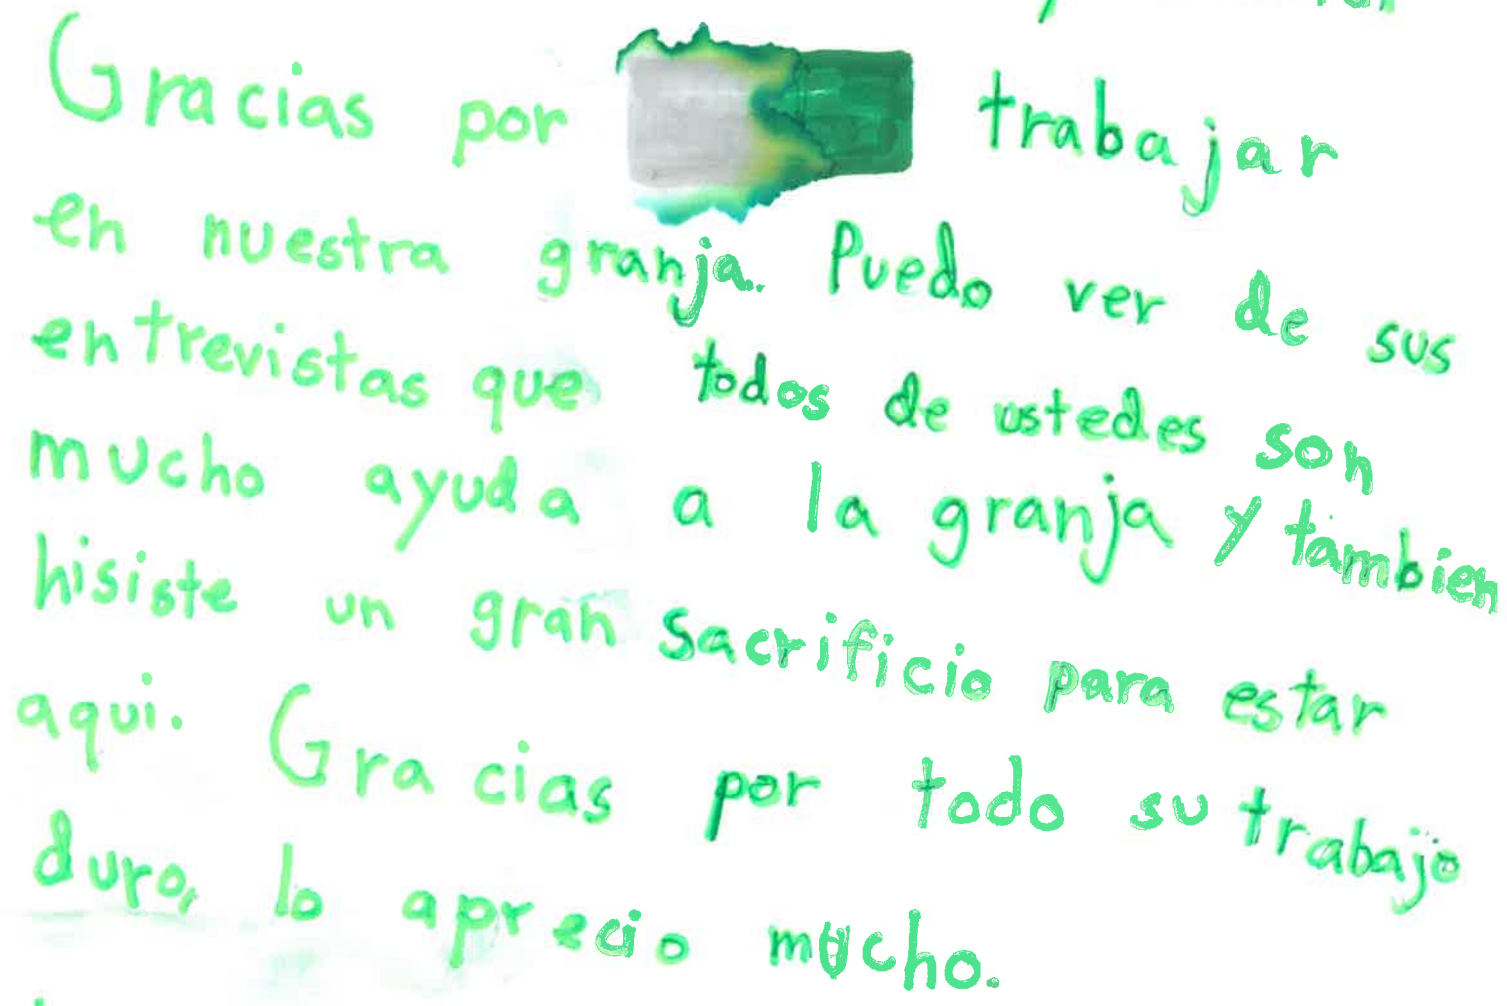 Gracias por trabajar
en nuestra granja. Puedo ver de sus
entrevistas que todos de ustedes son
mucho ayuda a la granja y tambien
hisiste un gran sacrificio para estar
aqui. Gracias por todo su trabajo
duro, lo aprecio mucho.